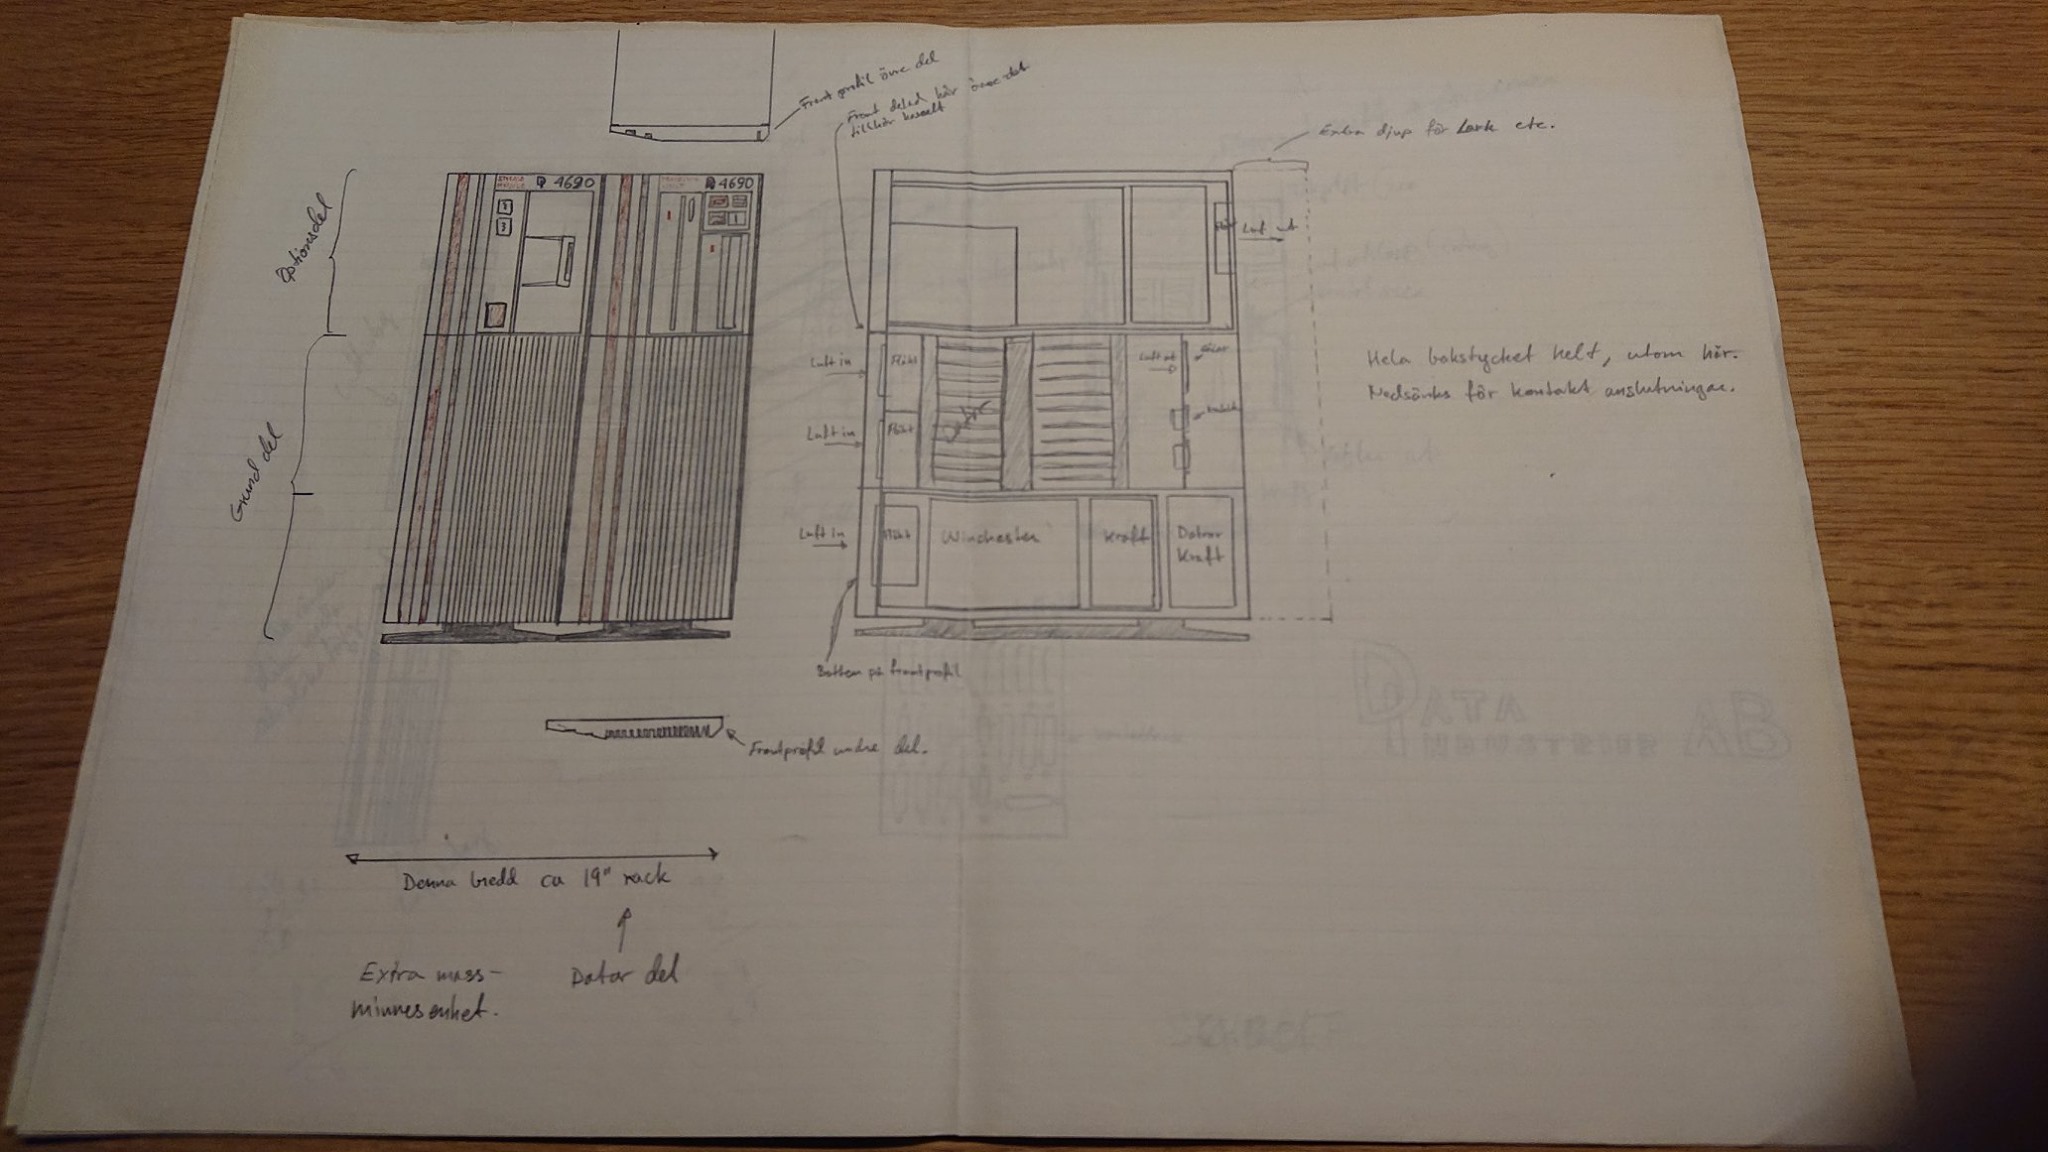 Frontprofil övre del
Front delad här övre del
tillhör
Extra djup för Lark etc.
Optionsdel
4690
4690
Luft ut
Luft in
Fläkt
Luft ut
Hela bakstycket helt, utom här.
Nedsänks för kontakt anslutningar.
Grund del
Luft in
Fläkt
Dator
Luft in
Fläkt
Winchester
Kraft
Dator
Kraft
Botten på frontprofil
Frontprofil undre del.
Denna bredd ca 19" rack
Extra mass-
minnesenhet.
Dator del
DATA